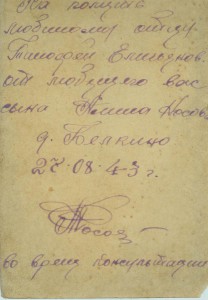 На память
любимому отцу
Тимофей Елисунов.
от любящего вас
сына Косов
д. Белкино
27.08.43 г.
Косов
во время консультации